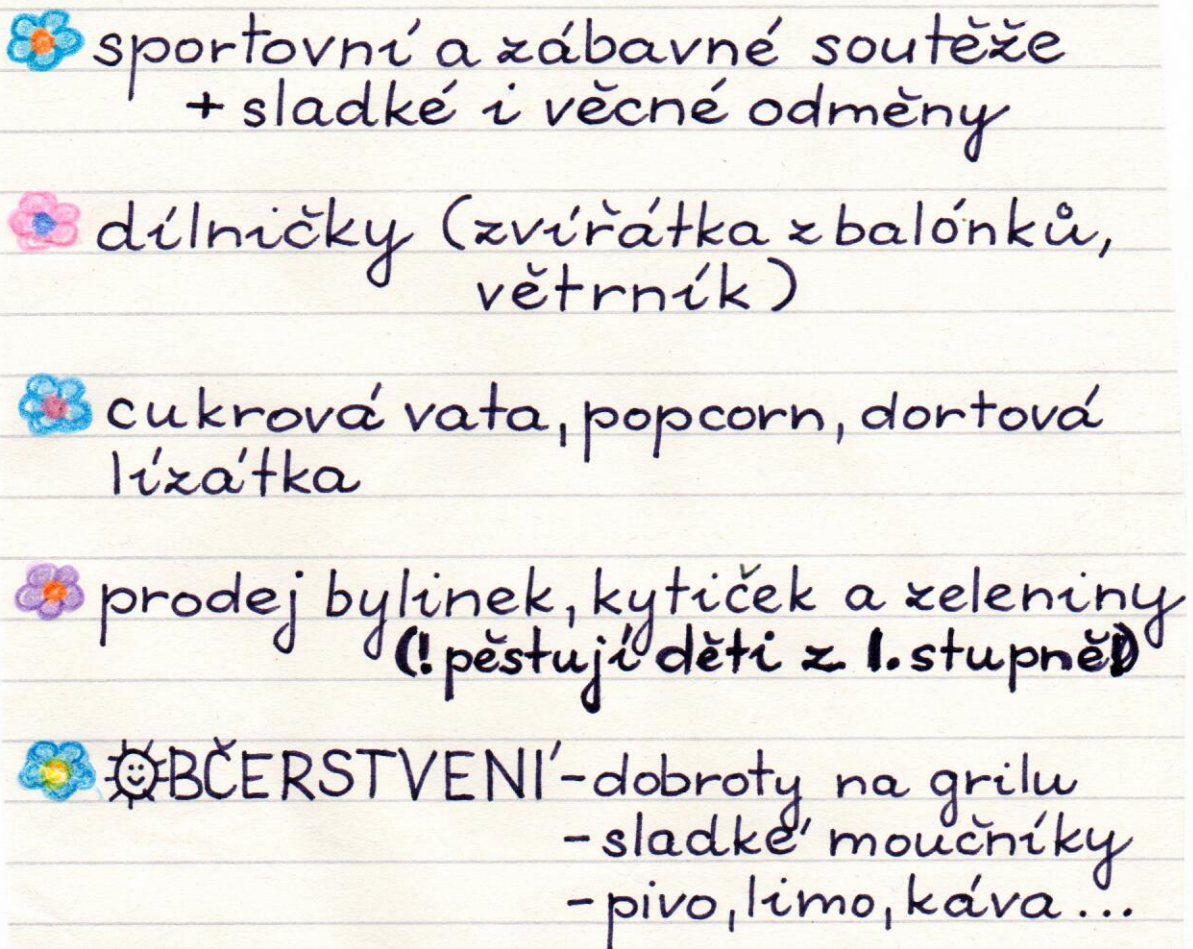 sportovní a zábavné soutěže
+ sladké i věcné odměny
dílničky (zvířátka z balónků,
větrník)
cukrová vata, popcorn, dortová
lízátka
prodej bylinek, kytiček a zeleniny
(! pěstují děti z 1. stupně!)
OBČERSTVENÍ - dobroty na grilu
- sladké moučníky
- pivo, limo, káva...